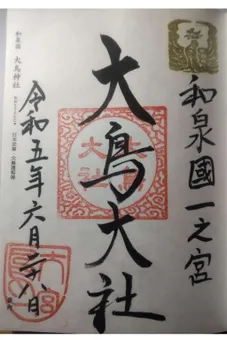 和泉國一之宮
大鳥大社
令和五年六月二十八日
和泉國 大鳥神社